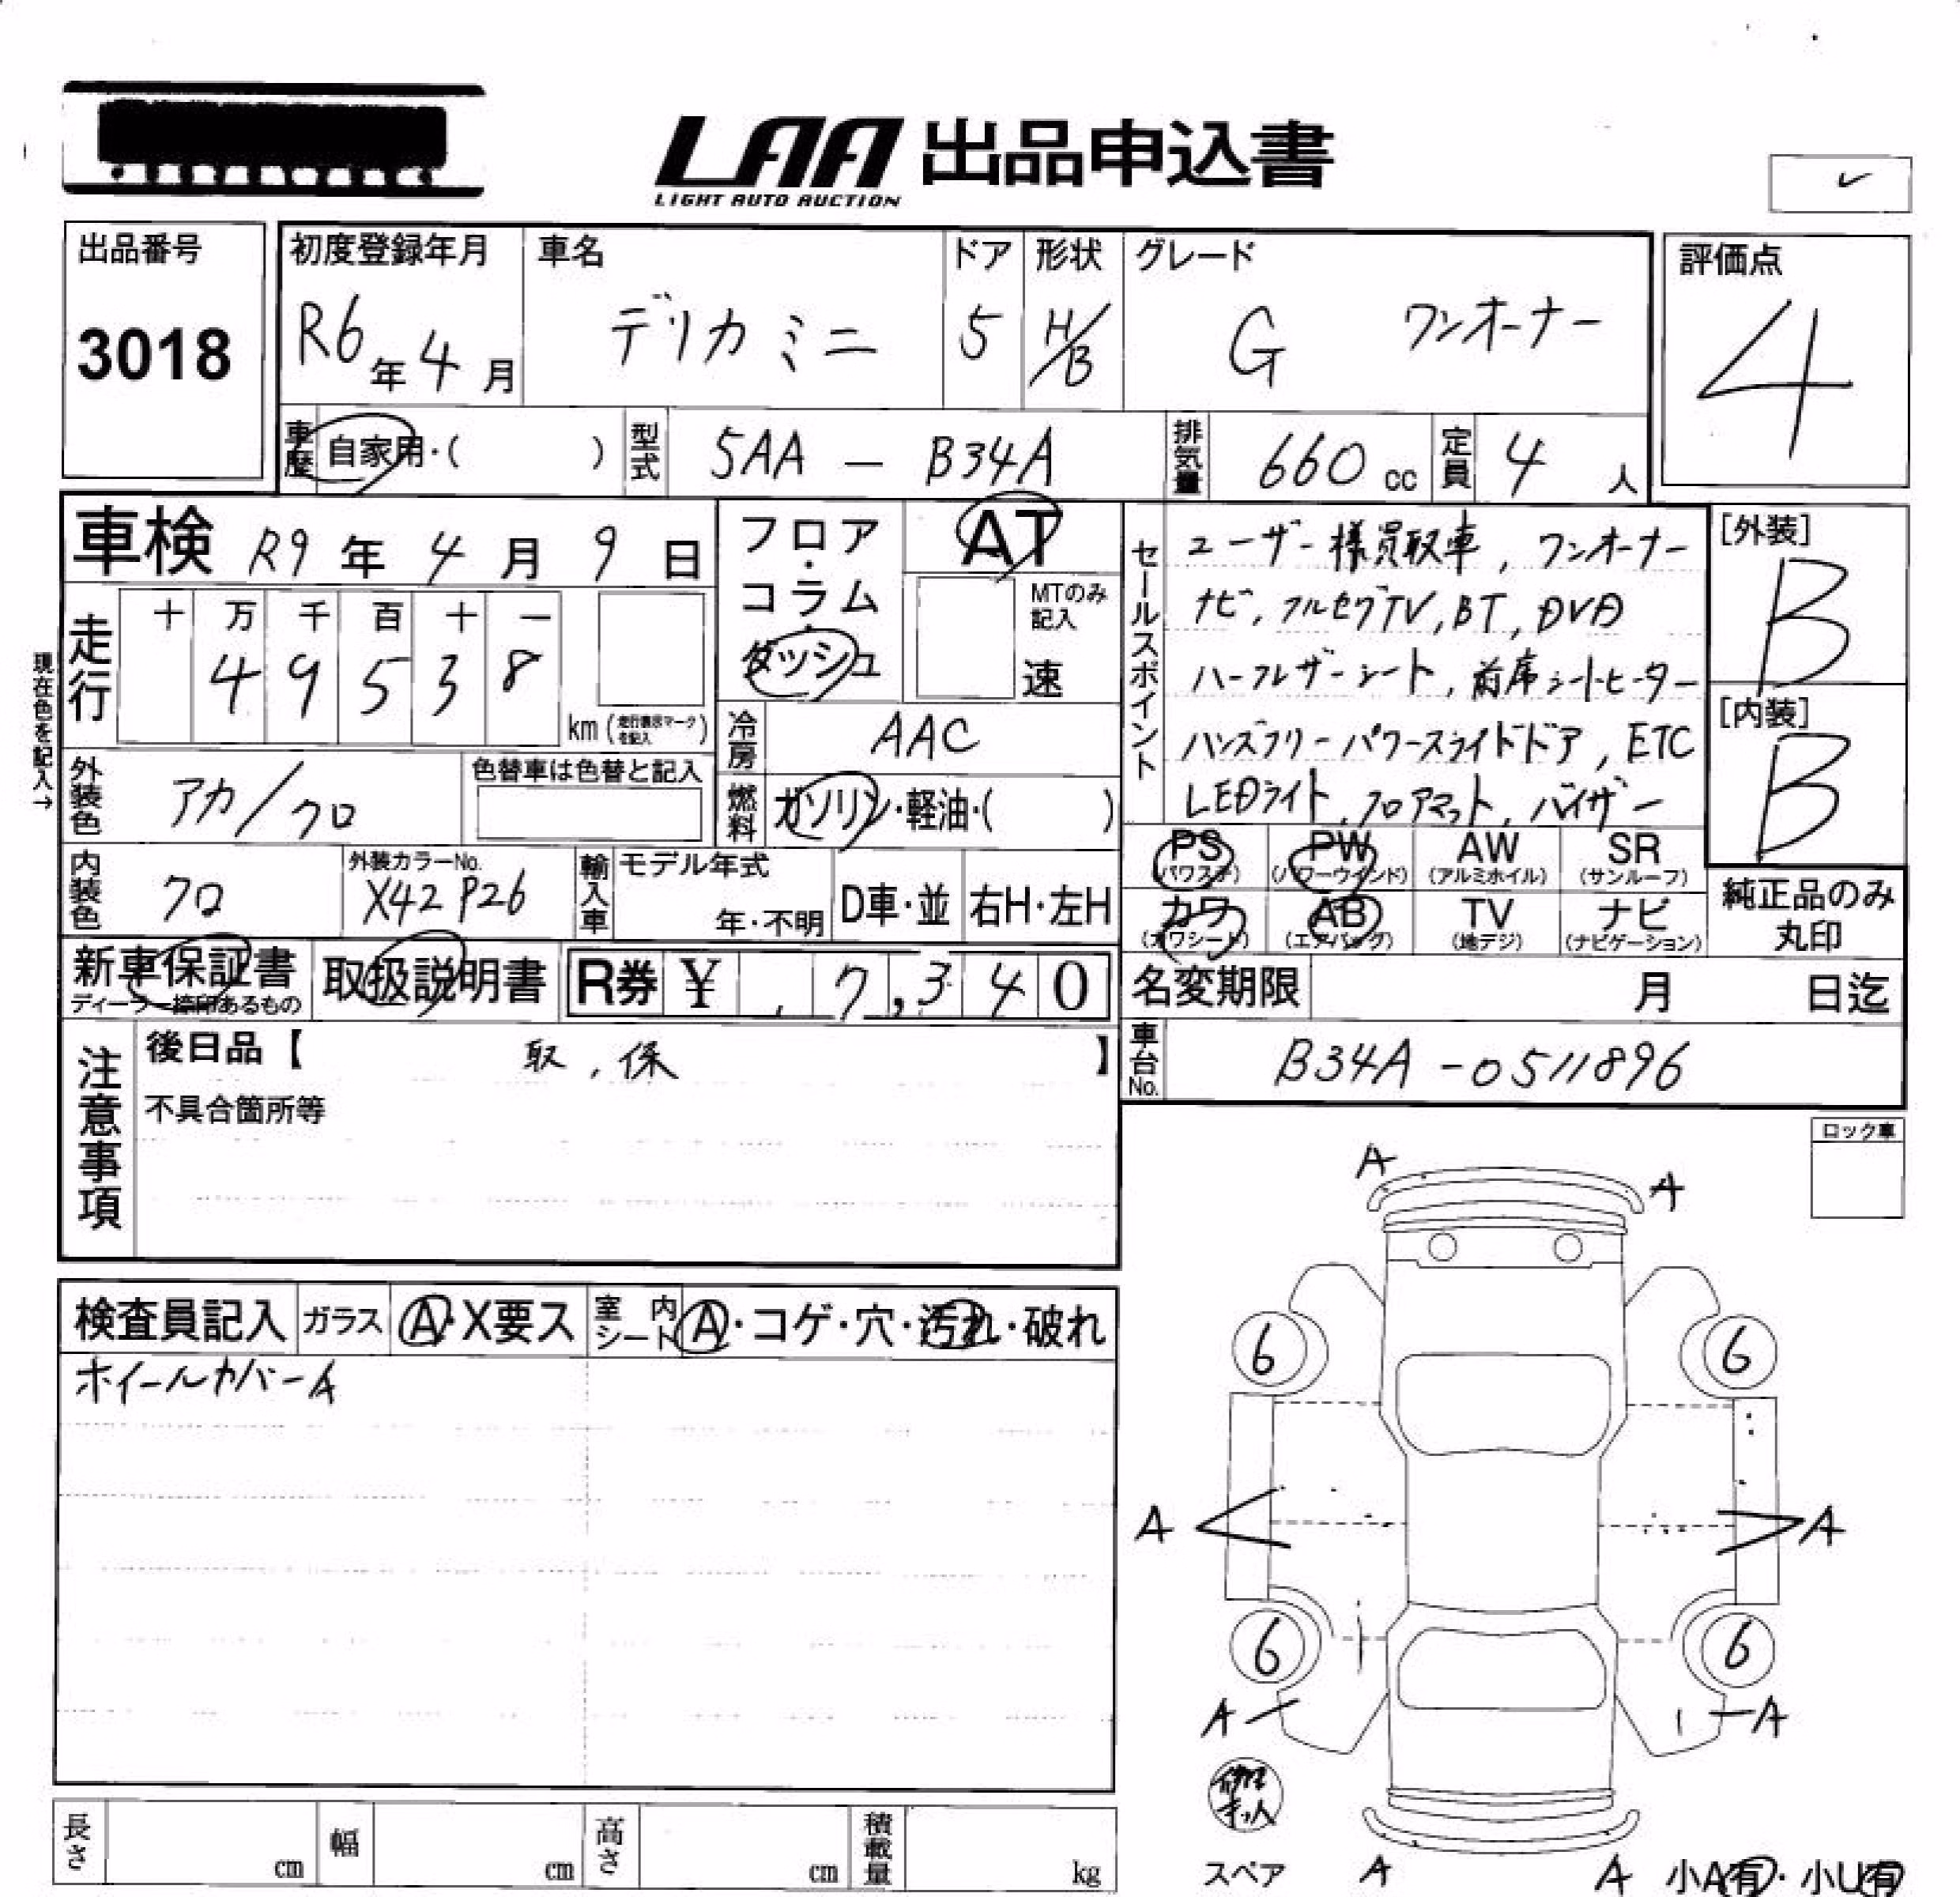 LAA 出品申込書
LIGHT AUTO AUCTION
✓
出品番号
3018
初度登録年月
R6年4月
車名
デリカミニ
ドア
5
形状
H/B
グレード
G ワンオーナー
評価点
4
車歴
自家用・( )
型式
5AA - B34A
排気量
660 cc
定員
4人
車検 R9年4月9日
現在色を記入→
走行
十 万 千 百 十 一
4 9 5 3 8
km(走行表示マークを記入)
フロア・コラム・ダッシュ
AT
MTのみ記入
速
冷房
AAC
燃料
ガソリン・軽油・( )
外装色
アカ/クロ
色替車は色替と記入
内装色
クロ
外装カラーNo.
X42 P26
輸入車
モデル年式
年・不明
D車・並
右H・左H
セールスポイント
ユーザー様買取車, ワンオーナー
ナビ, フルセグTV, BT, DVD
ハーフレザーシート, 前席シートヒーター
ハンズフリーパワースライドドア, ETC
LEDライト, フロアマット, バイザー
[外装]
B
[内装]
B
PS (パワステ)
PW (パワーウインド)
AW (アルミホイル)
SR (サンルーフ)
カワ (カワシート)
AB (エアバッグ)
TV (地デジ)
ナビ (ナビゲーション)
純正品のみ丸印
新車保証書
ディーラー捺印あるもの
取扱説明書
R券 ¥ 7,340
名変期限 月 日迄
車台No.
B34A-0511896
注意事項
後日品【 取, 保 】
不具合箇所等
ロック車
検査員記入
ガラス A・X要ス
室内シート A・コゲ・穴・汚れ・破れ
ホイールカバーA
A
A
6
6
A
A
6
6
A
A
スペア
A
A
小A有・小U有
長さ cm
幅 cm
高さ cm
積載量 kg